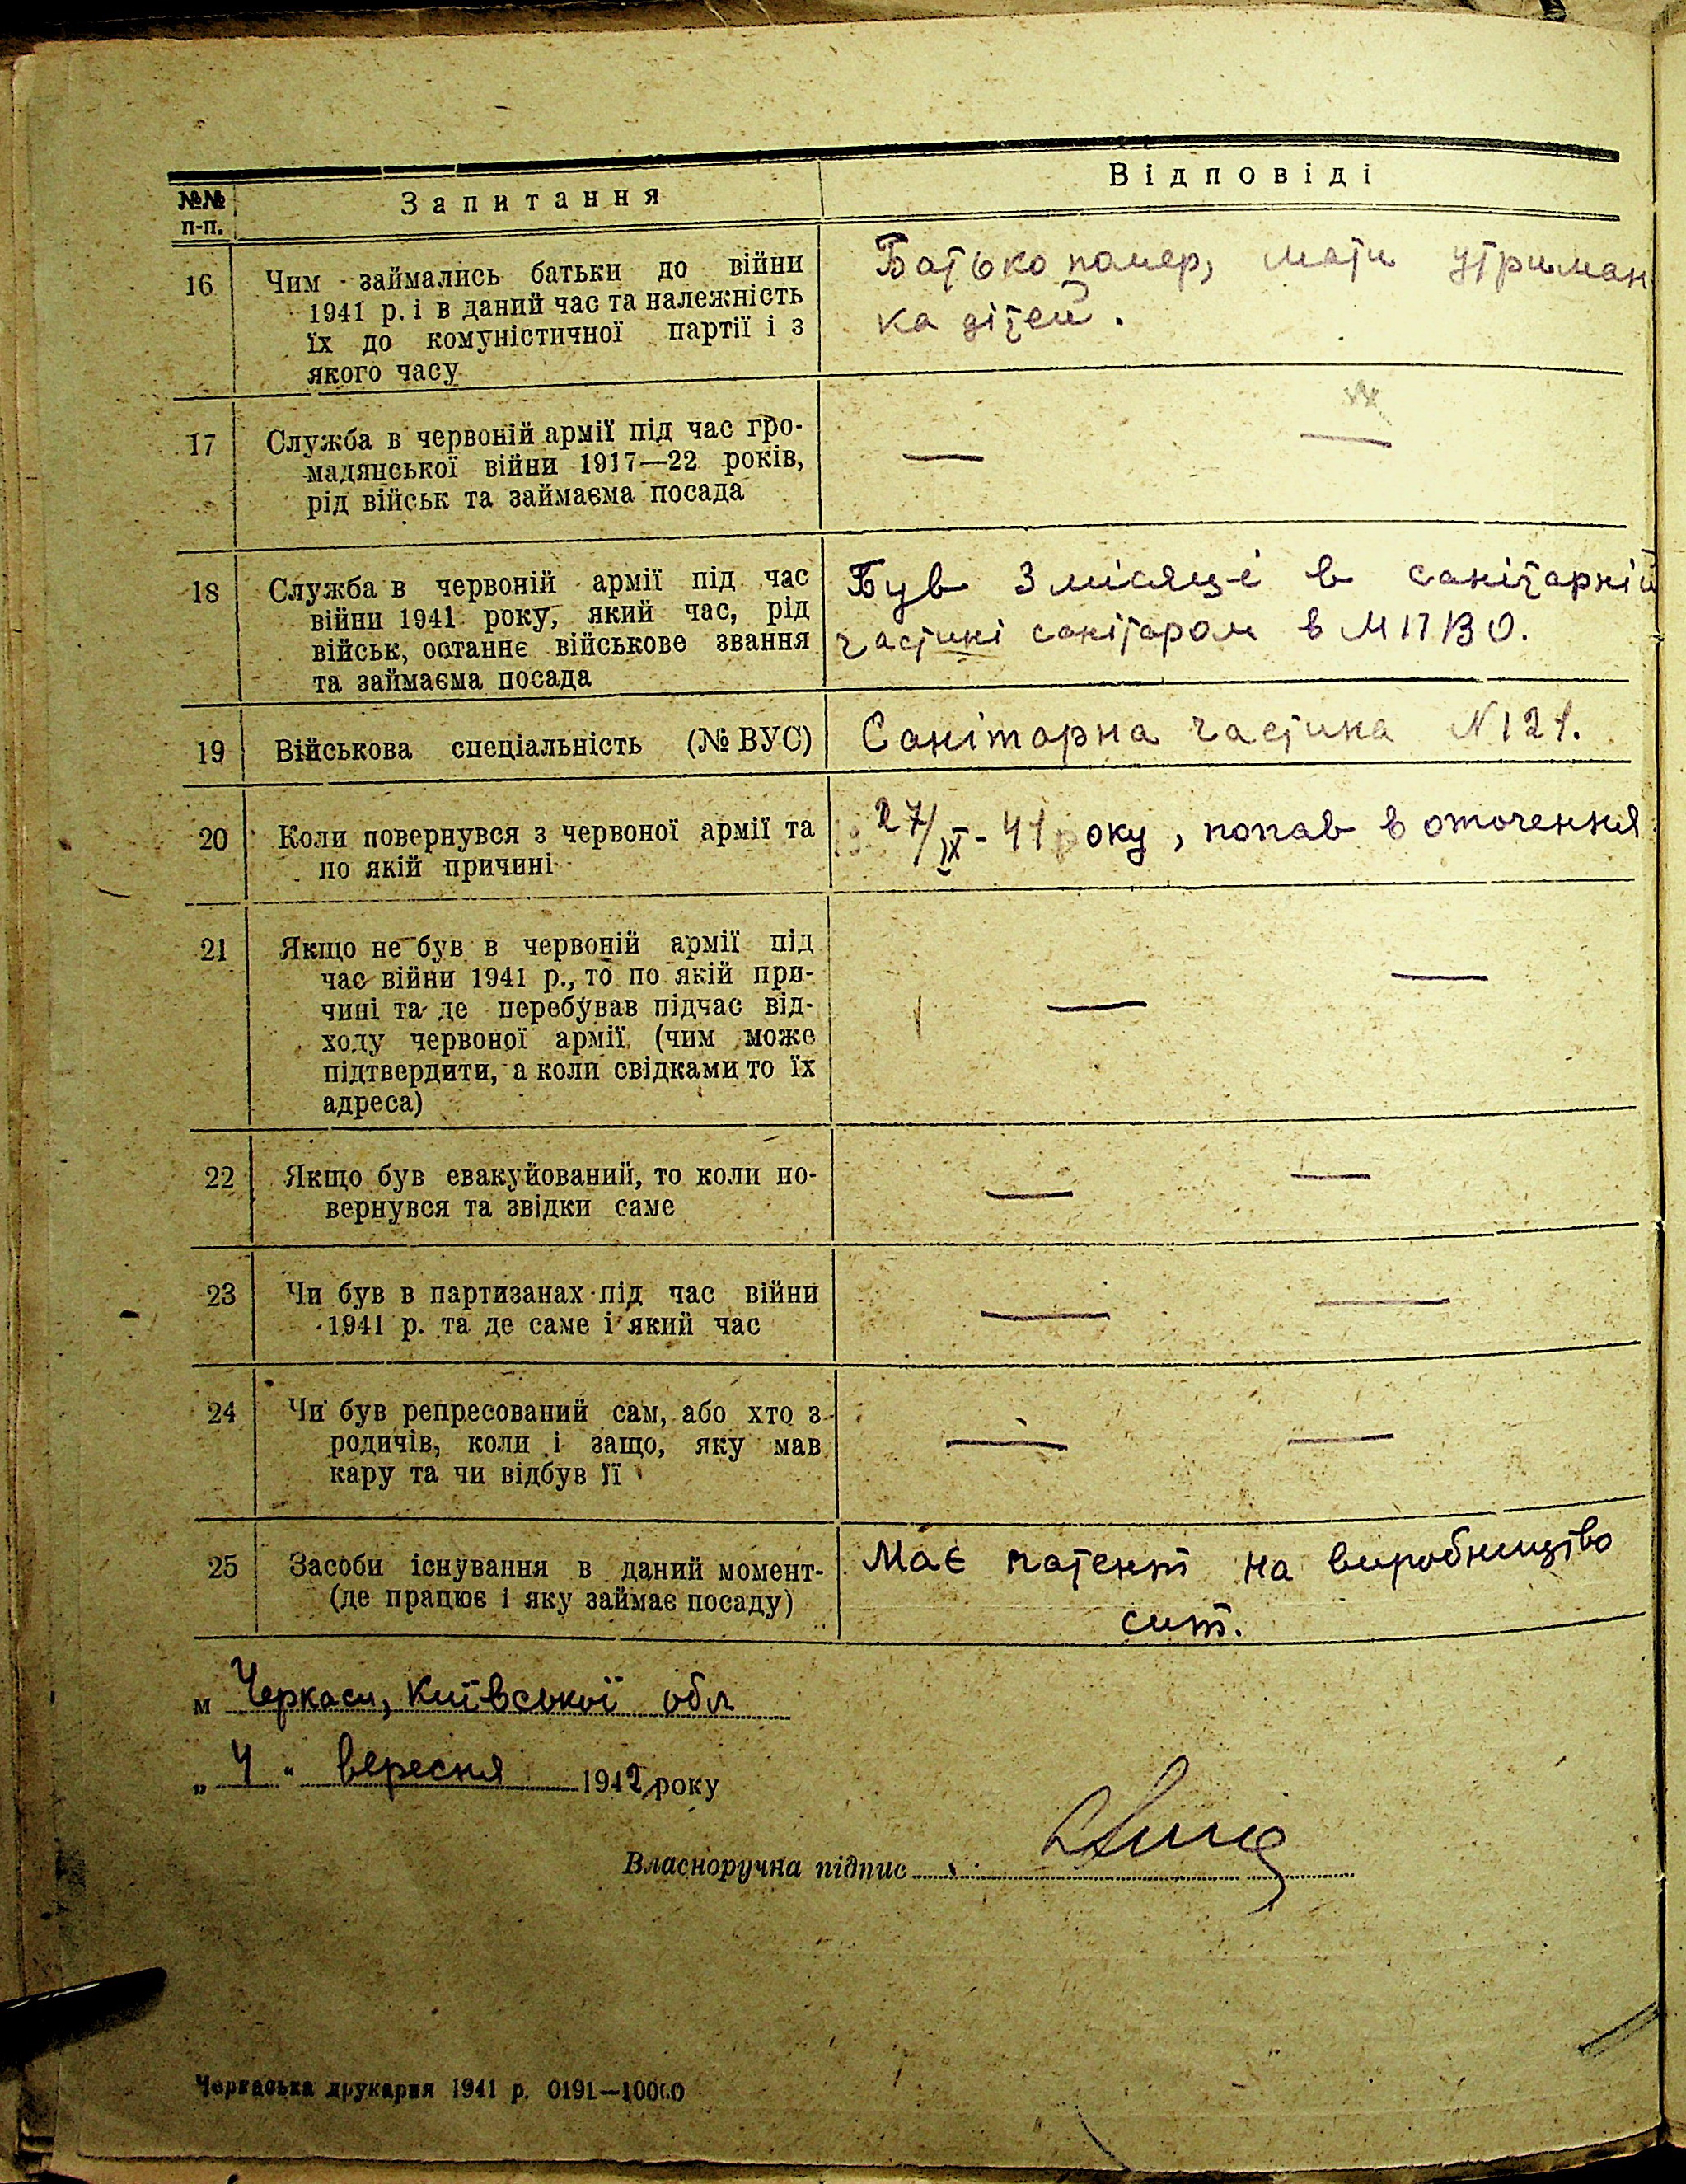 №№ п-п. Запитання Відповіді
16 Чим займались батьки до війни
1941 р. і в даний час та належність
їх до комуністичної партії і з
якого часу
Батько помер, мати утриман
ка дітей.
17 Служба в червоній армії під час гро-
мадянської війни 1917—22 років,
рід військ та займаєма посада
— —
18 Служба в червоній армії під час
війни 1941 року, який час, рід
військ, останнє військове звання
та займаєма посада
Був 3 місяці в санітарній
частині санітаром в МПВО.
19 Військова спеціальність (№ ВУС)
Санітарна частина N 121.
20 Коли повернувся з червоної армії та
по якій причині
27/IX - 41 року, попав в оточення
21 Якщо не був в червоній армії під
час війни 1941 р., то по якій при-
чині та де перебував підчас від-
ходу червоної армії (чим може
підтвердити, а коли свідками то їх
адреса)
— —
22 Якщо був евакуйований, то коли по-
вернувся та звідки саме
— —
23 Чи був в партизанах під час війни
1941 р. та де саме і який час
— —
24 Чи був репресований сам, або хто з
родичів, коли і защо, яку мав
кару та чи відбув її
— —
25 Засоби існування в даний момент-
(де працює і яку займає посаду)
Має патент на виробництво
сит.
м Черкаси, Київської обл
„ 4 " вересня 1942 року
Власноручна підпис
Черкаська друкарня 1941 р. 0191—10000